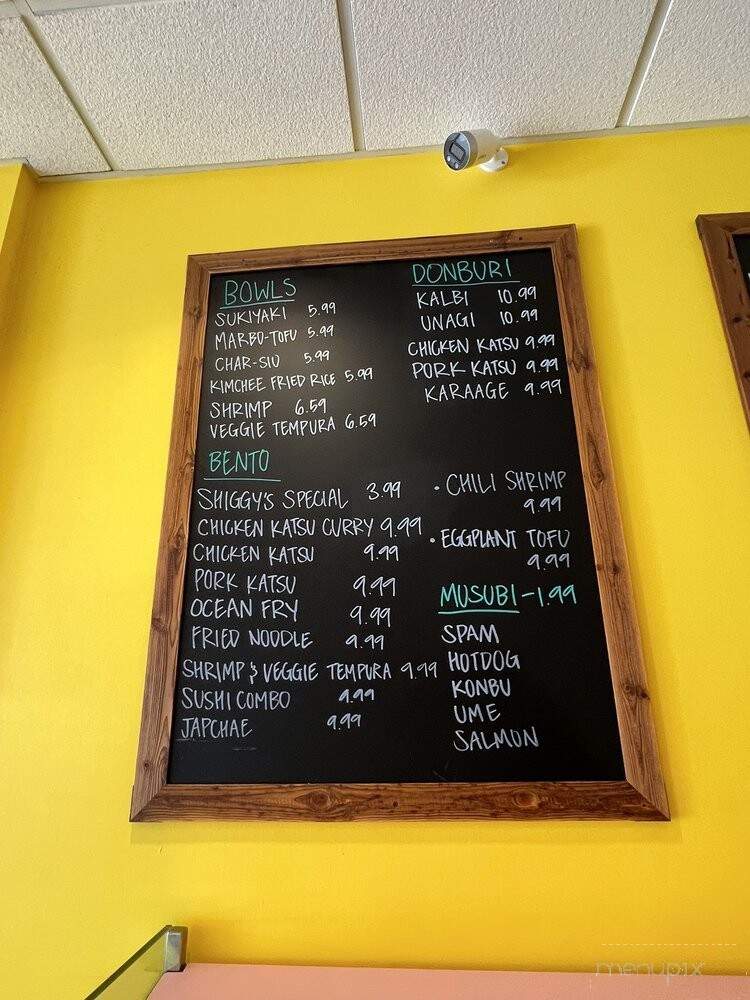 BOWLS
SUKIYAKI 5.99
MARBO-TOFU 5.99
CHAR-SIU 5.99
KIMCHEE FRIED RICE 5.99
SHRIMP 6.59
VEGGIE TEMPURA 6.59
DONBURI
KALBI 10.99
UNAGI 10.99
CHICKEN KATSU 9.99
PORK KATSU 9.99
KARAAGE 9.99
BENTO
SHIGGY'S SPECIAL 3.99
CHICKEN KATSU CURRY 9.99
CHICKEN KATSU 9.99
PORK KATSU 9.99
OCEAN FRY 9.99
FRIED NOODLE 9.99
SHRIMP & VEGGIE TEMPURA 9.99
SUSHI COMBO 9.99
JAPCHAE 9.99
• CHILI SHRIMP
9.99
• EGGPLANT TOFU
9.99
MUSUBI -1.99
SPAM
HOTDOG
KONBU
UME
SALMON
menupix